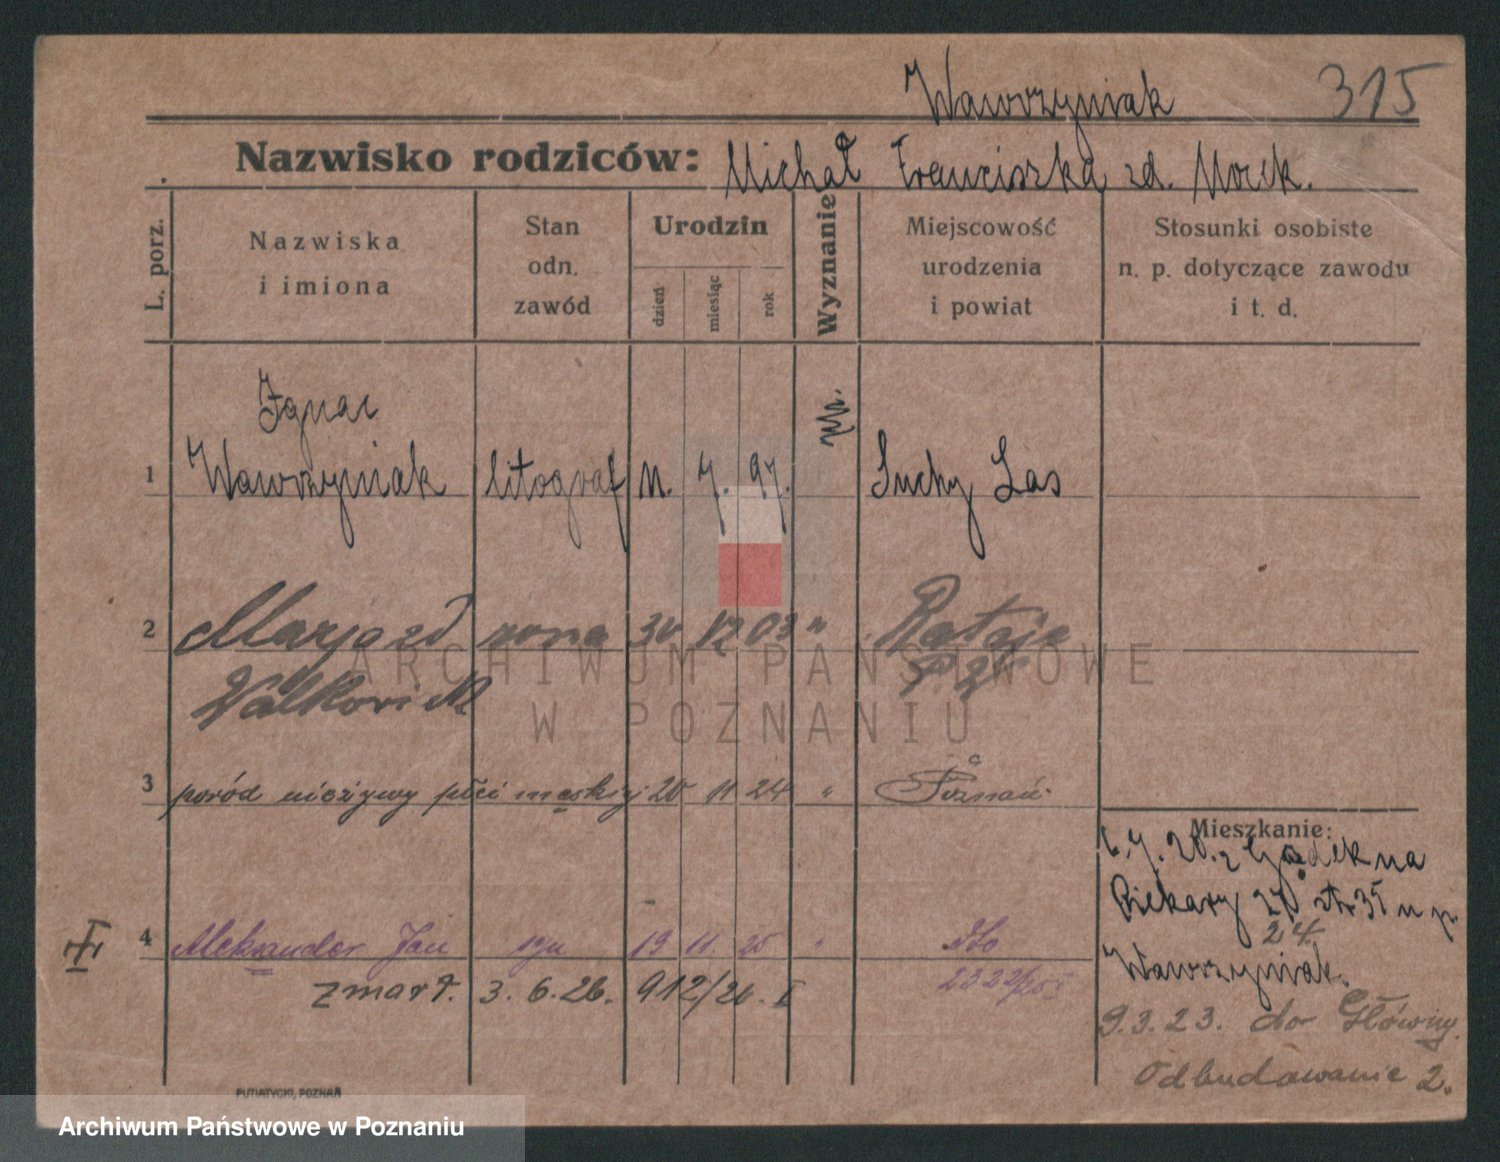 Wawrzyniak 315
Nazwisko rodziców: Michał Franciszka zd. Morek.
L. porz.
Nazwiska i imiona
Stan odn. zawód
Urodzin
dzień miesiąc rok
Wyznanie
Miejscowość urodzenia i powiat
Stosunki osobiste n. p. dotyczące zawodu i t. d.
Ignac
1 Wawrzyniak litograf 7. 97. Suchy Las
2 Marja zd żona 30 12 03 " Rataje
3 poród nieżywy płci męskiej 20 11 24 " Poznań
Mieszkanie:
6.7.20. z Gądek na
Piekary
24.
Wawrzyniak.
4 Aleksander Jan syn 19 11 25 " dto
zmarł. 3. 6. 26. 912/26. I 2322/25 I
9.3.23. do Główny
Odbudowanie 2.
PUTIATYCKI, POZNAŃ
ARCHIWUM PAŃSTWOWE
W POZNANIU
Archiwum Państwowe w Poznaniu